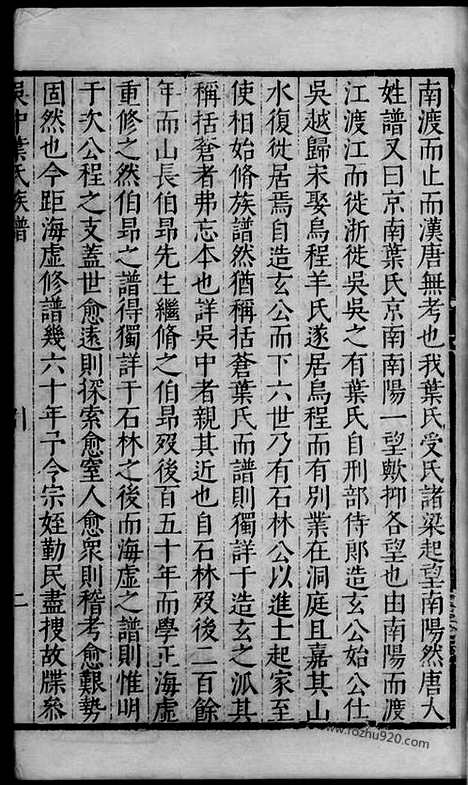 南渡而止而漢唐無考也我葉氏受氏諸梁起望南陽然唐大
姓譜又曰京南葉氏京南南陽一望歟抑各望也由南陽而渡
江渡江而徙浙徙吳吳之有葉氏自刑部侍郎造玄公始公仕
吳越歸宋娶烏程羊氏遂居烏程而有別業在洞庭且嘉其山
水復徙居焉自造玄公而下六世乃有石林公以進士起家至
使相始脩族譜然猶稱括蒼葉氏而譜則獨詳于造玄之派其
稱括蒼者弗忘本也詳吳中者親其近也自石林歿後二百餘
年而山長伯昂先生繼脩之伯昂歿後百五十年而學正海虛
重修之然伯昂之譜得獨詳于石林之後而海虛之譜則惟明
于次公程之支蓋世愈遠則探索愈窒人愈衆則稽考愈艱勢
固然也今距海虛修譜幾六十年予令宗姪勤民盡搜故牒叅
吳中葉氏族譜
二
www.fozhu920.com